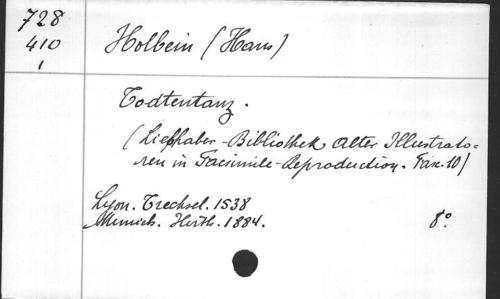 728
410
1
Holbein (Hans)
Todtentanz.
(Liebhaber-Bibliothek alter Illustrato=
ren in Facsimile-Reproduction. Fasc. 10)
Lyon. Trechsel. 1538
Munich. Hirth. 1884. 8°.